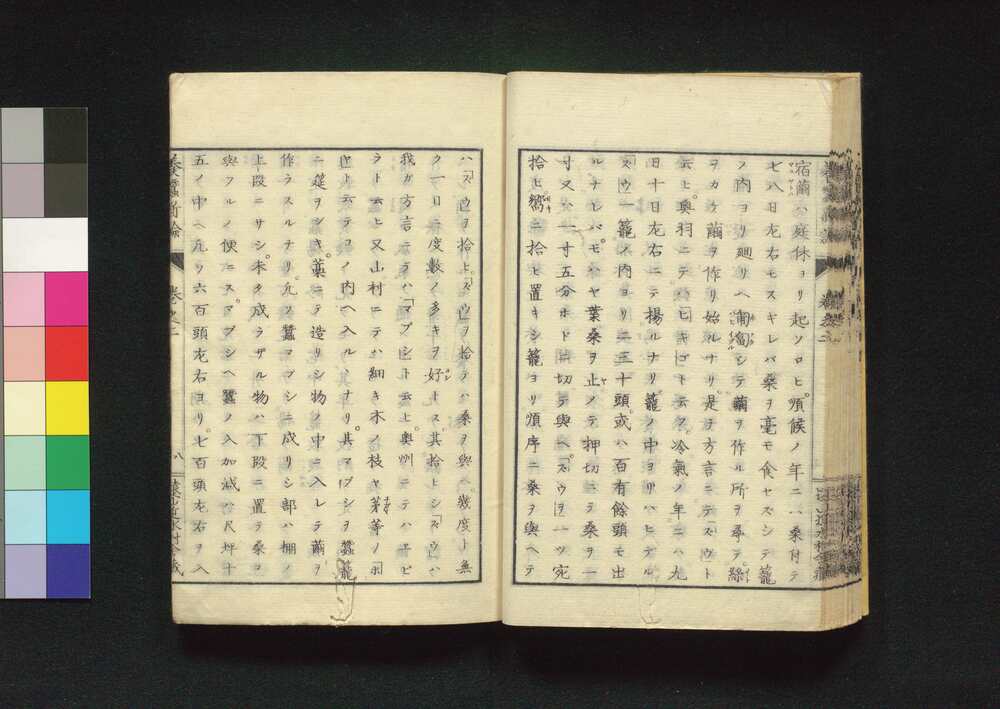 宿繭ハ庭休ヨリ起ソロヒ。順候ノ年ニハ桑付テ
七八日左右モスキレバ桑ヲ毫モ食セズシテ籠
ノ内ヨリ廻リヘ匍匐シテ繭ヲ作ル所ヲ尋テ。絲
ヲカケ繭ヲ作リ始ルナリ。是テ方言ニテ「ズウ」ト
云ヒ。奥羽ニテハ「ヒキゴ」ト云フ。冷氣ノ年ニハ九
日十日左右ニテ揚ルナリ。籠ノ中ヨリハヒデル
「ズウ」一籠ノ内ヨリ二三十頭。或ハ百有餘頭モ出
ルナレバ。モハヤ葉桑ヲ止メテ押切ニテ桑ヲ一
寸又ハ一寸五分ホドニ切テ與ヘ。「ズウ」ヲ一ツ宛
拾ヒ。嚮ニ拾ヒ置キシ籠ヨリ順序ニ桑ヲ與ヘテ
ハ「ズウ」ヲ拾ヒ。「ズウ」ヲ拾テハ桑ヲ與ヘ幾度ト無
ク一日ニ度數ノ多キヲ好トス。其拾ヒシ「ズウ」ハ
我ガ方言ニテハ「マブシ」ト云ヒ。奥州ニテハ
ラト云ヒ又山村ニテハ細キ木ノ枝ヤ茅等ノ
ト云テコノ内ヘ入ルヽナリ。其マブシヲ蠶籠
ニ莚ヲシキ。藁ニテ造リシ物ノ中ニ入レテ繭ヲ
作ラスルナリ。凡ソ蠶マブシニ成リシ部ハ棚ノ
上段ニサシ。未タ成ラザル物ハ下段ニ置テ桑ヲ
與フルノ便ニス。マブシヘ蠶ノ入加減ハ尺坪十
五ノ中ヘ凡ソ六百頭左右ヨリ。七百頭左右ヲ入
養蠶新論 卷之二 八